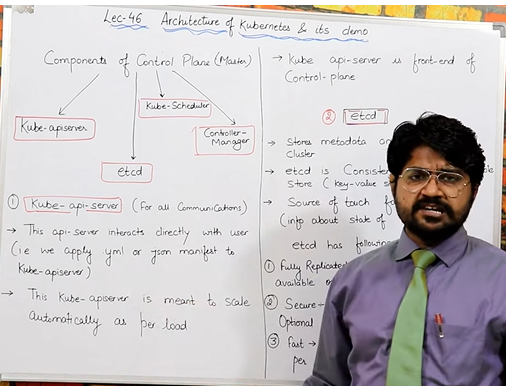 Lec-46 Architecture of Kubernetes & its demo
Components of Control Plane (Master)
Kube-apiserver
etcd
Kube-Scheduler
Controller-
Manager
① Kube-api-server (For all Communications)
→ This api-server interacts directly with user
(i.e we apply yml or json manifest to
Kube-apiserver)
→ This Kube-apiserver is meant to scale
automatically as per load
→ Kube api-server is front-end of
Control-plane
② etcd
→ Stores metadata
cluster
→ etcd is Consiste
store (key-value
→ Source of touch
(info about state of
etcd has following
① Fully Replicated
available
② Secure-
Optional
③ Fast →
per